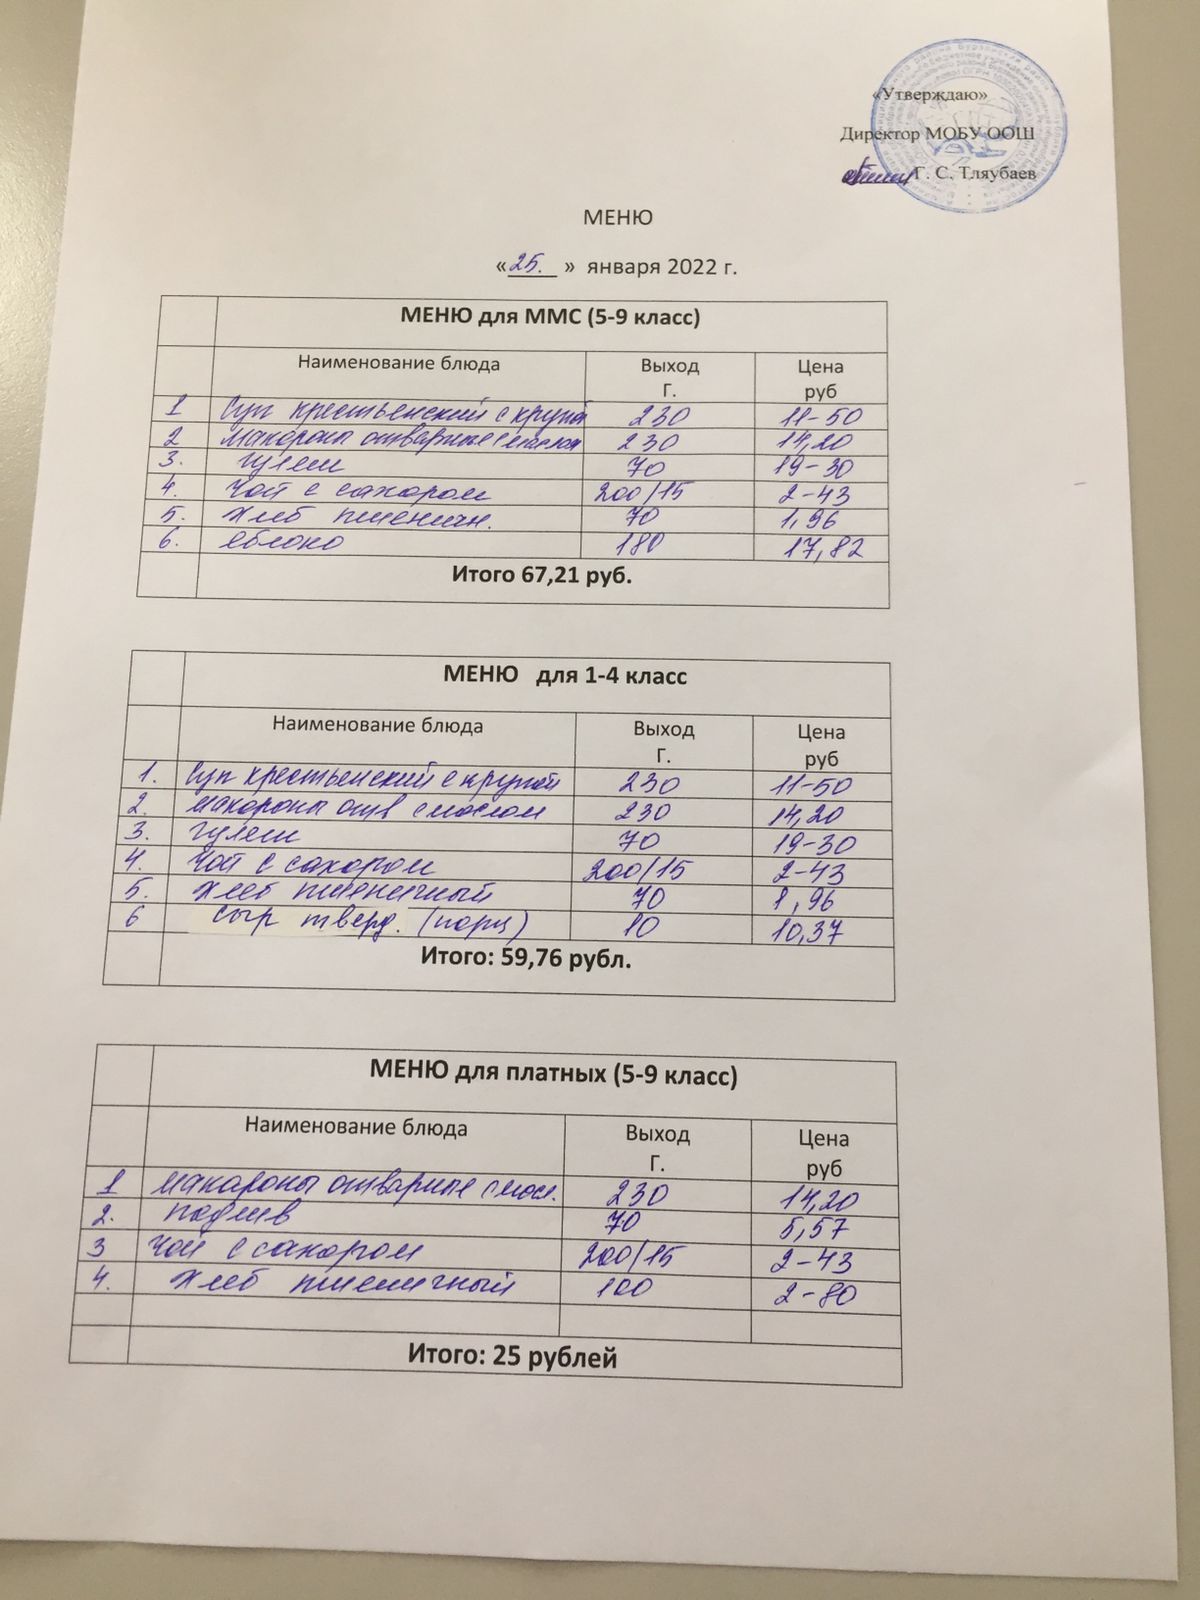 «Утверждаю»
Директор МОБУ ООШ
Г. С. Тляубаев
МЕНЮ
«25.» января 2022 г.
МЕНЮ для ММС (5-9 класс)
Наименование блюда Выход Г. Цена руб
1 Суп крестьенский с крупой 230 11-50
2 Макароны отварные с маслом 230 14,20
3. гуляш 70 19-30
4. Чай с сахаром 200/15 2-43
5. Хлеб пшеничн. 70 1,96
6. яблоко 180 17,82
Итого 67,21 руб.
МЕНЮ для 1-4 класс
Наименование блюда Выход Г. Цена руб
1. Суп крестьенский с крупой 230 11-50
2. макароны отв с маслом 230 14,20
3. гуляш 70 19-30
4. Чай с сахаром 200/15 2-43
5. Хлеб пшеничный 70 1,96
6 сыр тверд. (порц) 10 10,37
Итого: 59,76 рубл.
МЕНЮ для платных (5-9 класс)
Наименование блюда Выход Г. Цена руб
1 Макароны отварные с масл. 230 14,20
2. подлив 70 5,57
3 Чай с сахаром 200/15 2-43
4. Хлеб пшеничный 100 2-80
Итого: 25 рублей